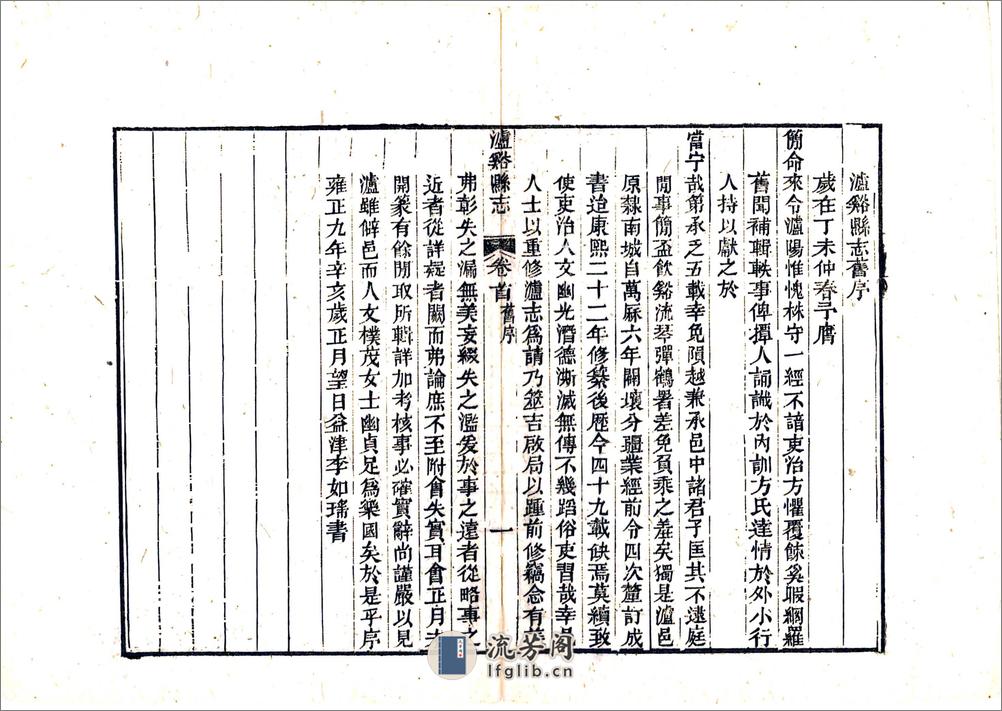 瀘谿縣志舊序
歲在丁未仲春予膺
簡命來令瀘陽惟愧株守一經不諳吏治方懼覆餗奚暇網羅
舊聞補輯軼事俾撢人誦識於內訓方氏達情於外小行
人持以獻之於
當宁哉第承乏五載幸免隕越兼承邑中諸君子匡其不逮庭
閒事簡盃飲谿流琴彈鶴署差免負乘之羞矣獨是瀘邑
原隸南城自萬厤六年闢壤分疆業經前令四次釐訂成
書迨康熙二十二年修纂後歴今四十九載缺焉莫續致
使吏治人文幽光潛德澌滅無傳不幾蹈俗吏習哉幸
人士以重修瀘志為請乃筮吉啟局以踵前修竊念有
瀘谿縣志
卷首
舊序
一
弗彰失之漏無美妄綴失之濫爰於事之遠者從略事之
近者從詳疑者闕而弗論庶不至附會失實耳會正月
開篆有餘閒取所輯詳加考核事必確實辭尚謹嚴以見
瀘雖僻邑而人文樸茂女士幽貞足為樂國矣於是乎序
雍正九年辛亥歲正月望日益津李如瑤書
流芳阁
lfglib.cn